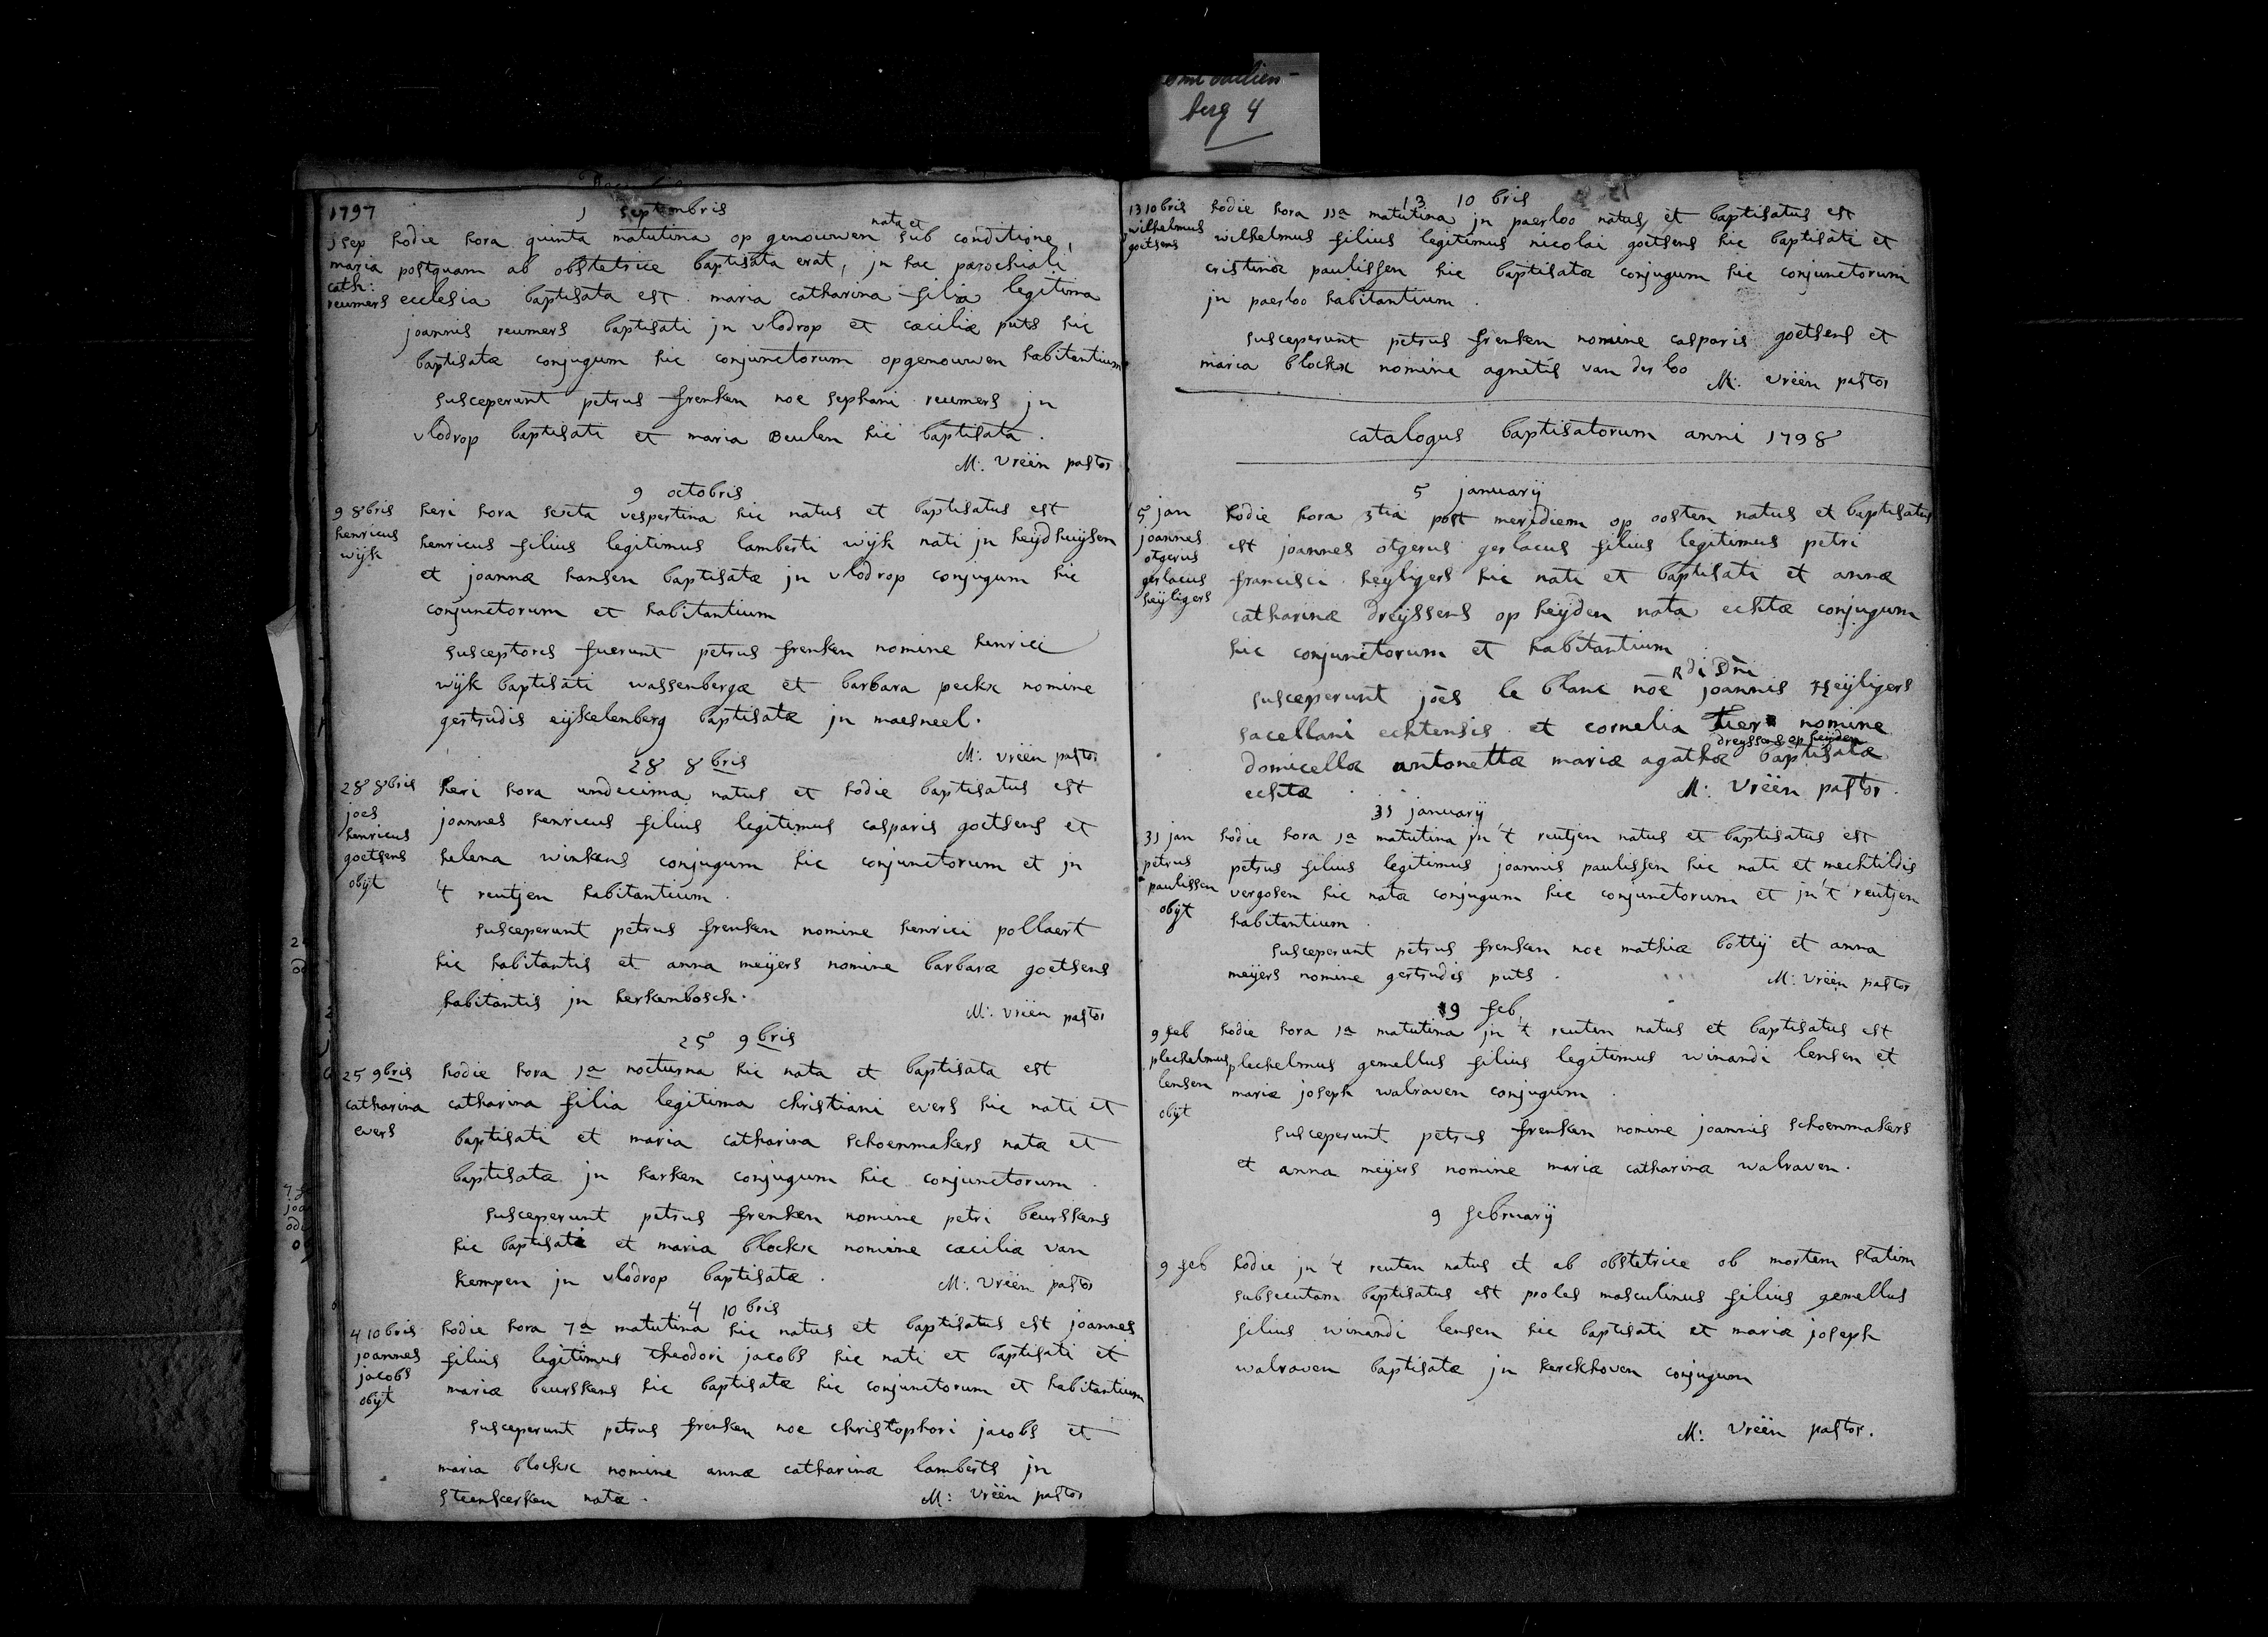 berg 4
1797
1 septembris
1 sep hodie hora quinta matutina op genouwen nata et sub conditione,
maria postquam ab obstetrice baptisata erat, jn hac parochiali
cath:
reumers ecclesia baptisata est maria catharina filia legitima
joannis reumers baptisati jn vlodrop et cæciliæ puts hic
baptisatæ conjugum hic conjunctorum opgenouwen habitantium
susceperunt petrus frenken noe sephani reumers jn
vlodrop baptisati et maria Beulen hic baptisata.
M: vreën pastor
9 octobris
9 8bris
henricus
wijk
heri hora sexta vespertina hic natus et baptisatus est
henricus filius legitimus lamberti wijk nati jn heijdhuijsen
et joannæ hansen baptisatæ jn vlodrop conjugum hic
conjunctorum et habitantium
susceptores fuerunt petrus frenken nomine henrici
wijk baptisati wassenbergæ et barbara peckx nomine
gertrudis eijkelenberg baptisatæ jn maesneel.
M: vreën pastor
28 8bris
28 8bris
joes
henricus
goetsens
obijt
heri hora undecima natus et hodie baptisatus est
joannes henricus filius legitimus casparis goetsens et
helena winkens conjugum hic conjunctorum et jn
't reutjen habitantium.
susceperunt petrus frenken nomine henrici pollaert
hic habitantis et anna meijers nomine barbaræ goetsens
habitantis jn herkenbosch.
M: vreën pastor
25 9bris
25 9bris
catharina
evers
hodie hora 1a nocturna hic nata et baptisata est
catharina filia legitima christiani evers hic nati et
baptisati et maria catharina schoenmakers natæ et
baptisatæ jn karken conjugum hic conjunctorum.
susceperunt petrus frenken nomine petri beurskens
hic baptisati et maria blockx nomine cæcilia van
kempen jn vlodrop baptisatæ.
M: vreën pastor
4 10bris
4 10bris
joannes
jacobs
obijt
hodie hora 7a matutina hic natus et baptisatus est joannes
filius legitimus theodori jacobs hic nati et baptisati et
mariæ beurskens hic baptisatæ hic conjunctorum et habitantium
susceperunt petrus frenken noe christophori jacobs et
maria blockx nomine annæ catharinæ lamberts jn
steenkerken natæ.
M: vreën pastor
13 10 bris
13 10bris
wilhelmus
goetsens
hodie hora 11a matutina jn paerloo natus et baptisatus est
wilhelmus filius legitimus nicolai goetsens hic baptisati et
cristinæ paulissen hic baptisatæ conjugum hic conjunctorum
jn paerloo habitantium.
susceperunt petrus frenken nomine casparis goetsens et
maria blockx nomine agnetis van der loo
M: vreën pastor
catalogus baptisatorum anni 1798
5 januarij
5 jan
joannes
otgerus
gerlacus
heijligers
hodie hora 3tia post meridiem op oosten natus et baptisatus
est joannes otgerus gerlacus filius legitimus petri
francisci heyligers hic nati et baptisati et annæ
catharinæ dreyssens op heijden nata echtæ conjugum
hic conjunctorum et habitantium
susceperunt joēs le blanc nōe Rdi Dni joannis Heijligers
sacellani echtensis et cornelia nomine
domicellæ antonettæ mariæ agathæ dreyssens op heijden baptisatæ
echtæ
M: Vreën pastor.
31 januarij
31 jan
petrus
paulissen
obijt
hodie hora 1a matutina jn 't reutjen natus et baptisatus est
petrus filius legitimus joannis paulissen hic nati et mechtildis
vergosen hic nata conjugum hic conjunctorum et jn 't reutjen
habitantium.
susceperunt petrus frenken noe mathiæ bottij et anna
meijers nomine gertrudis puts.
M: vreën pastor
9 feb
9 feb
plechelmus
lensen
obijt
hodie hora 1a matutina jn 't reuten natus et baptisatus est
plechelmus gemellus filius legitimus winandi lensen et
mariæ joseph walraven conjugum.
susceperunt petrus frenken nomine joannis schoenmakers
et anna meijers nomine mariæ catharinæ walraven.
9 februarij
9 feb
hodie jn 't reuten natus et ab obstetrice ob mortem statim
subsecutam baptisatus est proles masculinus filius gemellus
filius winandi lensen hic baptisati et mariæ joseph
walraven baptisatæ jn kerckhoven conjugum
M: Vreën pastor.